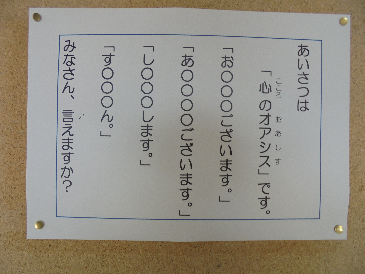 あいさつは
「心のオアシス」です。
「お〇〇〇ございます。」
「あ〇〇〇〇ございます。」
「し〇〇〇します。」
「す〇〇〇ん。」
みなさん、言えますか？